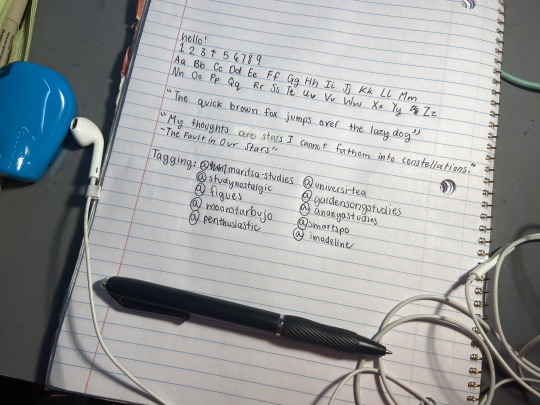 hello!
1 2 3 4 5 6 7 8 9
Aa Bb Cc Dd Ee Ff Gg Hh Ii Jj Kk Ll Mm
Nn Oo Pp Qq Rr Ss Tt Uu Vv Ww Xx Yy Zz
"The quick brown fox jumps over the lazy dog"
"My thoughts are stars I cannot fathom into constellations."
-The Fault in Our Stars"
Tagging: @maritsa-studies @universi-tea
@studynostalgic @gardensongstudies
@figues @ananyastudies
@moonstarbujo @smartspo
@penthusiastic @imadeline